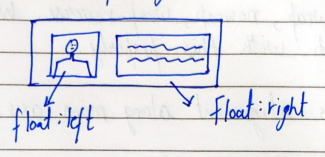 float:left
float:right